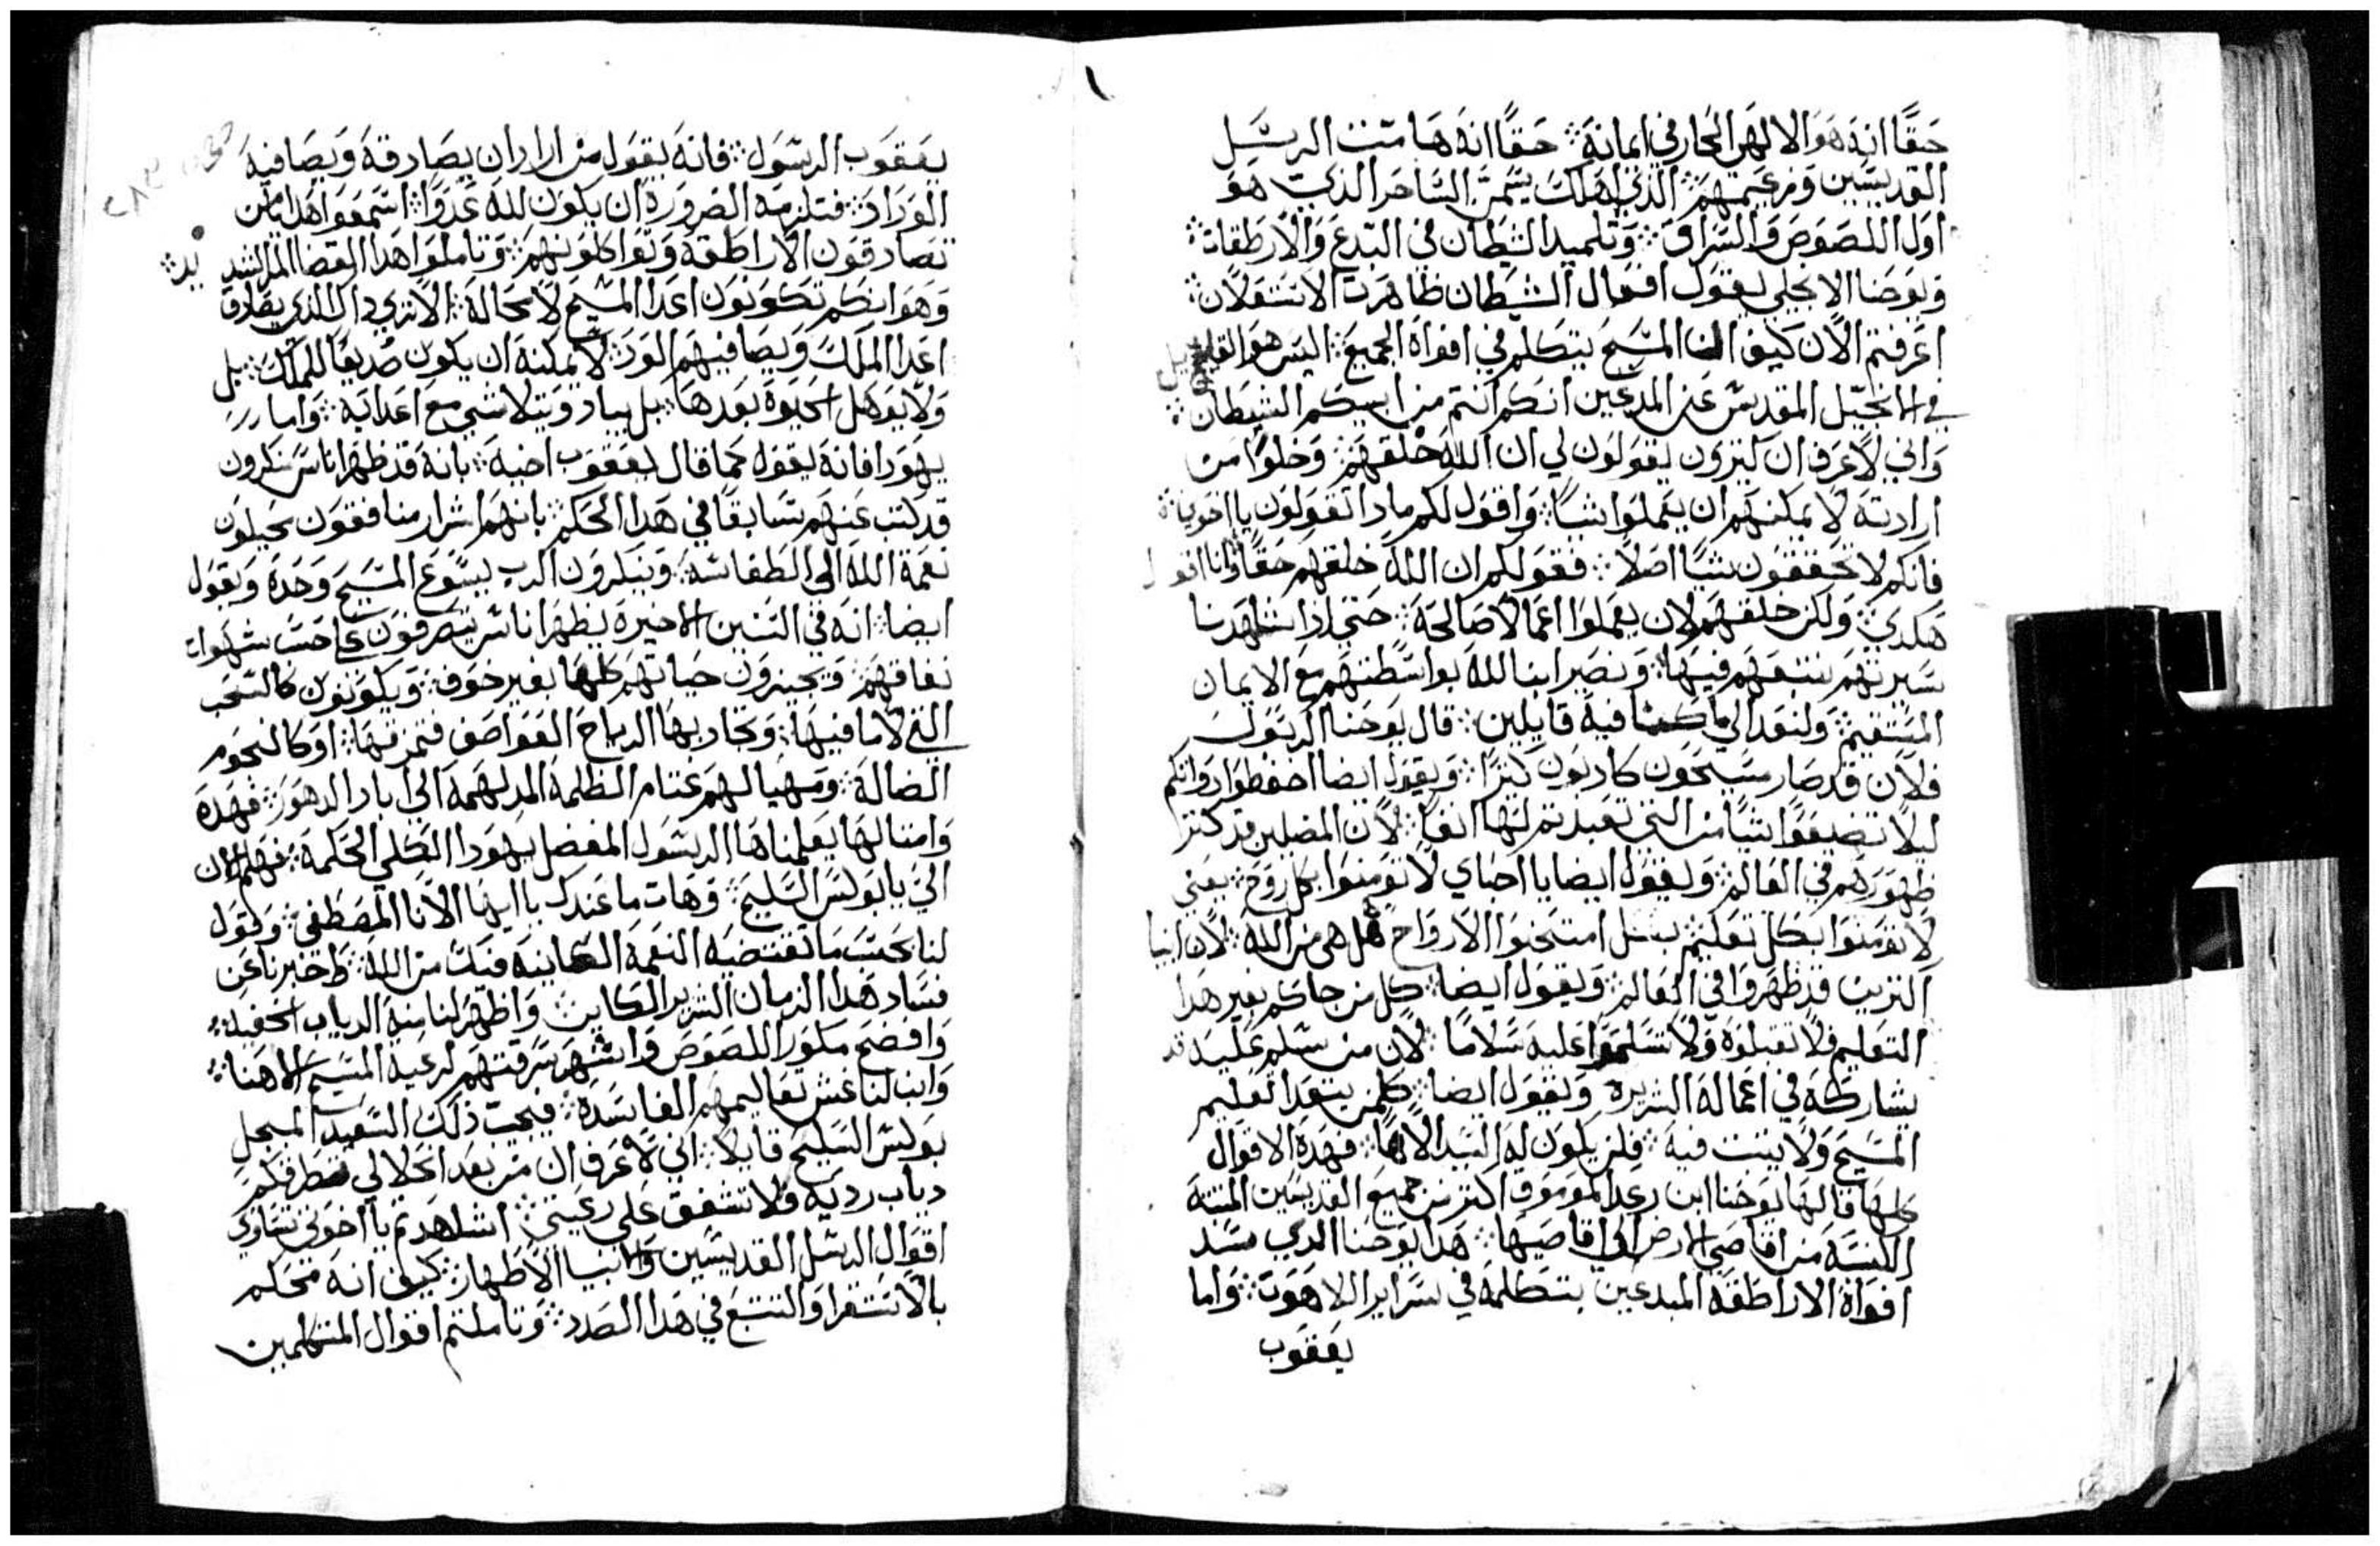 حقًا انه هو الالهي الحار في ايمانه ܀ حقًا انه هامت الرسل
القديسين وزعيمهم ܀ الذي اهلك سيمن الساحر الذي هو
اول اللصوص والسراق ܀ وتلميد الشيطان في البدع والارطقات ܀
ويوحنا الانجيلي يقول افعال الشيطان ظاهرت الاشتعلان ܀
اعرفتم الان كيف ان المسيح يتكلم في افواه الجميع ܀ اليس هو القايل
في الانجيل المقدس عن المدعين انكم انتم من ابيكم الشيطان ܀
واني لاعرف ان كثيرون يقولون لي ان الله خلقهم ܀ وخلوا من
ارادته لا يمكنهم ان يعملوا شيًا ܀ واقول لكم مادا تقولون يا اخويا ܀
فانكم لا تحققون شيًا اصلًا ܀ فقولكم ان الله خلقهم حقًا وانا اقول
هكدي ܀ ولكن خلقهم لان يعملوا اعمالًا صالحة ܀ حتي ادا شاهدنا
سيرتهم نتبعهم فيها ܀ ونصير ابنا لله بواسطتهم مع الايمان
المستقيم ܀ ولنعد الي ما كنا فيه قايلين ܀ قال يوحنا الرسول
فلان قد صار مسيحون كادبون كثيرًا ܀ ويقول ايضا احفظوا دواتكم
ليلا تضيعوا شيًا من التي تعبدتم لها انفًا ܀ لان المضلين قد كتر
ظهورهم في العالم ܀ ويقول ايضا يا احباي لا تومنوا بكل روح ܀ يعني
لا تومنوا بكل تعليم بل امتحنوا الارواح هل هي من الله ܀ لان انبيا
كتيرين قد ظهروا في العالم ܀ ويقول ايضا ܀ كل من جاكم بغير هدا
التعليم فلا تقبلوه ولا تسلموا عليه سلامًا ܀ لان من سلم عليه قد
يشاركه في اعماله الشريره ܀ ويقول ايضا ܀ كلمن يتعدا تعليم
المسيح ولا يتبت فيه ܀ فلن يكون له السيد الاهًا ܀ فهده الاقوال
كلها قالها يوحنا ابن رعد الموموق اكتر من جميع القديسين المنبته
الكنسه من اقاصي الارض الي اقاصيها ܀ هدا يوحنا الدي سد
افواه الاراطقه المبدعين بتكلمه في سراير اللاهوت ܀ واما
يعقوب
يعقوب الرسول ܀ فانه يقول من اراد ان يصادقه ويصافيه
الوراد ܀ فتلزمه الضروره ان يكون لله عدوًا ܀ اسمعوا هدا يا من
تصادقون الاراطقه وتواكلونهم ܀ وتاملوا هدا القضا المرشد
وهو انكم تكونون اعدا المسيح لا محاله ܀ الا تري داك الدي يصادق
اعدا الملك ويصافيهم الود ܀ لا يمكنه ان يكون صديقًا للملك ܀ بل
ولا يوهل لحيوة بعدها ܀ بل يباد ويتلاشي مع اعدايه ܀ واما
يهودا فانه يقول كما قال يعقوب اخيه ܀ بانه قد ظهر اناس منكرون
قد كتب عنهم سابقًا في هدا الحكم ܀ بانهم اشرار منافقون يحيلون
نعمة الله الي الطفاسه ܀ وينكرون الرب يسوع المسيح وحده ويقول
ايضا ܀ انه في السنين الاخيره يظهر اناس يتصرفون علي حسب شهوات
نفاقهم ܀ ويجيزون حياتهم كلها بغير خوف ܀ ويكونون كالسحب
التي لا ما فيها ܀ وتحاربها الرياح العواصف فتمزقها ܀ او كالنجوم
الضاله ܀ ومهيا لهم عتام الظلمة المدلهمه الي اباد الدهور ܀ فهده
وامتالها يعلمناها الرسول المفضل يهودا الكلي الحكمه ܀ فهلم الان
الي يا بولس السليح ܀ وهات ما عندك يا ايها الانا المصطفي ܀ وقول
لنا بحسب ما تقتضيه النعمة الكاينه فيك من الله ܀ واخبرنا عن
فساد هدا الزمان الشرير الكاين ܀ واظهر لنا منه الدياب الخفيه ܀
وافضح مكور اللصوص واشهر سرقتهم لرعية المسيح الاهنا ܀
وابن لنا غش تعاليمهم الفاسده ܀ فيجيب ذلك السعيد المبجل
بولس السليح قايلًا ܀ اني لاعرف ان من بعد انحلالي تطرقكم
دياب رديه ولا تشفق علي رعيتي ܀ اشاهدتم يا اخوتي تساوي
اقوال الرسل القديسين والانبيا الاطهار ܀ كيف انه محكم
بالاستقرا والتتبع في هدا الصدد ܀ وتاملتم اقوال المتكلمين